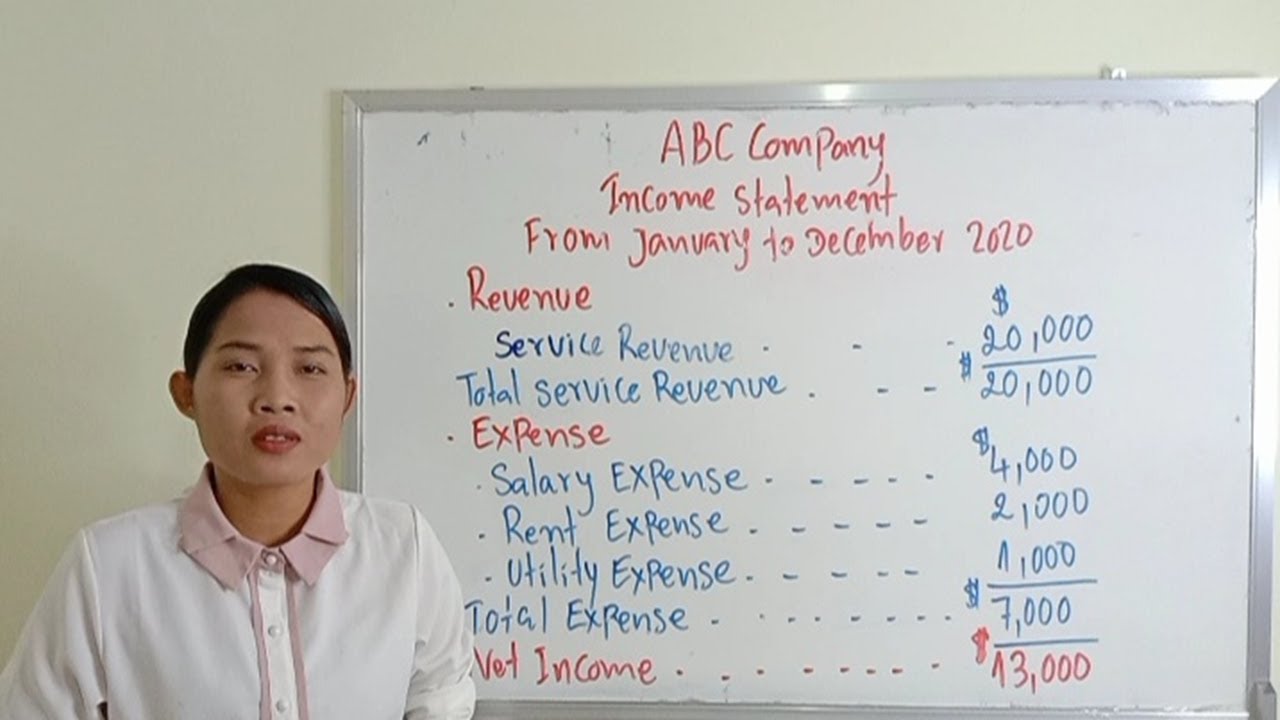 ABC Company
Income Statement
From January to December 2020
. Revenue $
Service Revenue . - - 20,000
Total Service Revenue . - - $ 20,000
. Expense
. Salary Expense . - - - - - $ 4,000
. Rent Expense . - - - - - 2,000
. Utility Expense . - - - - 1,000
Total Expense . . - - - - - $ 7,000
Net Income . . - - - - - $ 13,000